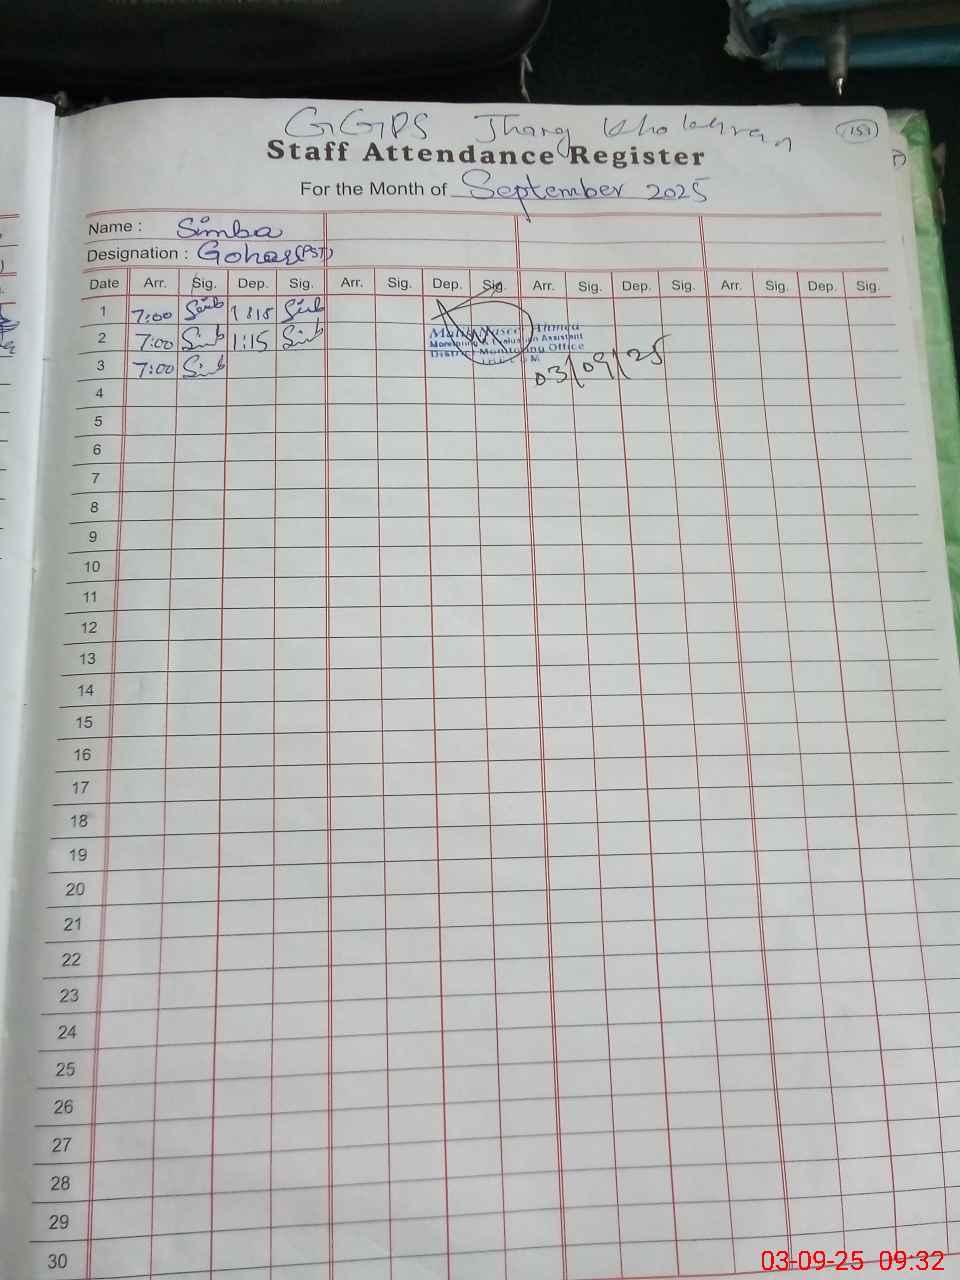 GGPS Jhang
151
Staff Attendance Register
For the Month of September 2025
Name : Simba
Designation : Gohar (PST)
Date Arr. Sig. Dep. Sig. Arr. Sig. Dep. Sig. Arr. Sig. Dep. Sig. Arr. Sig. Dep. Sig.
1 7:00 1:15
2 7:00 Simb 1:15 Simb
3 7:00 Simb
Monitoring & Evaluation Assistant
District Monitoring Office
03/09/25
4
5
6
7
8
9
10
11
12
13
14
15
16
17
18
19
20
21
22
23
24
25
26
27
28
29
30
03-09-25 09:32